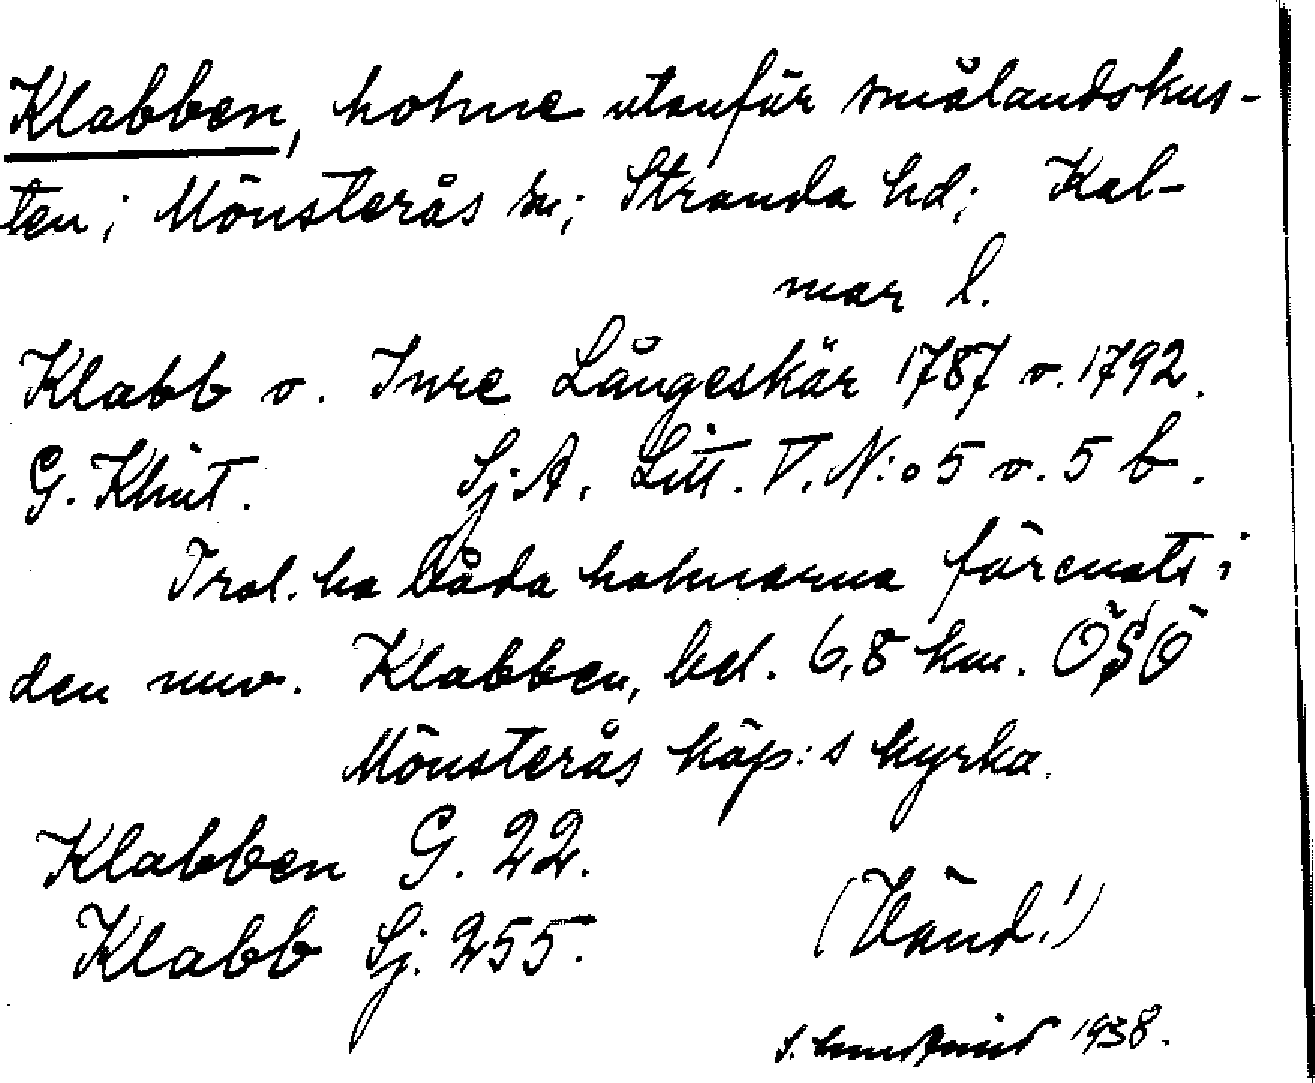 Klabben, holme utanför smålandskus-
ten; Mönsterås sn; Stranda hd; Kal-
mar l.
Klabb o. Inre Långeskär 1787 o. 1792.
G. Klint. Sj. A. Litt. V. N:o 5 o. 5 b.
Trol. ha båda holmarna förenats i
den nuv. Klabben, bel. 6,8 km. ÖSÖ
Mönsterås köp:s kyrka.
Klabben G. 22.
Klabb Sj. 255.
(Vänd!)
1938.